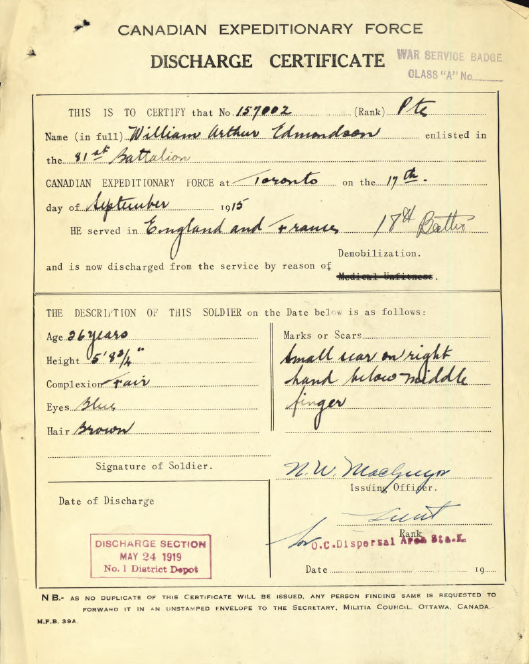 CANADIAN EXPEDITIONARY FORCE
DISCHARGE CERTIFICATE
WAR SERVICE BADGE
CLASS "A" No
THIS IS TO CERTIFY that No 157002 (Rank) Pte
Name (in full) William Arthur Edmondson enlisted in
the 81st Battalion
CANADIAN EXPEDITIONARY FORCE at Toronto on the 17th.
day of September 1915
HE served in England and France 18th Battn
Demobilization.
and is now discharged from the service by reason of Medical Unfitness.
THE DESCRIPTION OF THIS SOLDIER on the Date below is as follows:
Age 26 years
Height 5' 8 3/4"
Complexion Fair
Eyes Blue
Hair Brown
Marks or Scars
Small scar on right
hand below middle
finger
Signature of Soldier.
N.W.
Issuing Officer.
Lieut
Rank
for O.C. Dispersal Area Sta. K.
Date of Discharge
DISCHARGE SECTION
MAY 24 1919
No. 1 District Depot
Date 19
N B.- AS NO DUPLICATE OF THIS CERTIFICATE WILL BE ISSUED, ANY PERSON FINDING SAME IS REQUESTED TO
FORWARD IT IN AN UNSTAMPED ENVELOPE TO THE SECRETARY, MILITIA COUNCIL, OTTAWA, CANADA.
M.F.B. 39A.